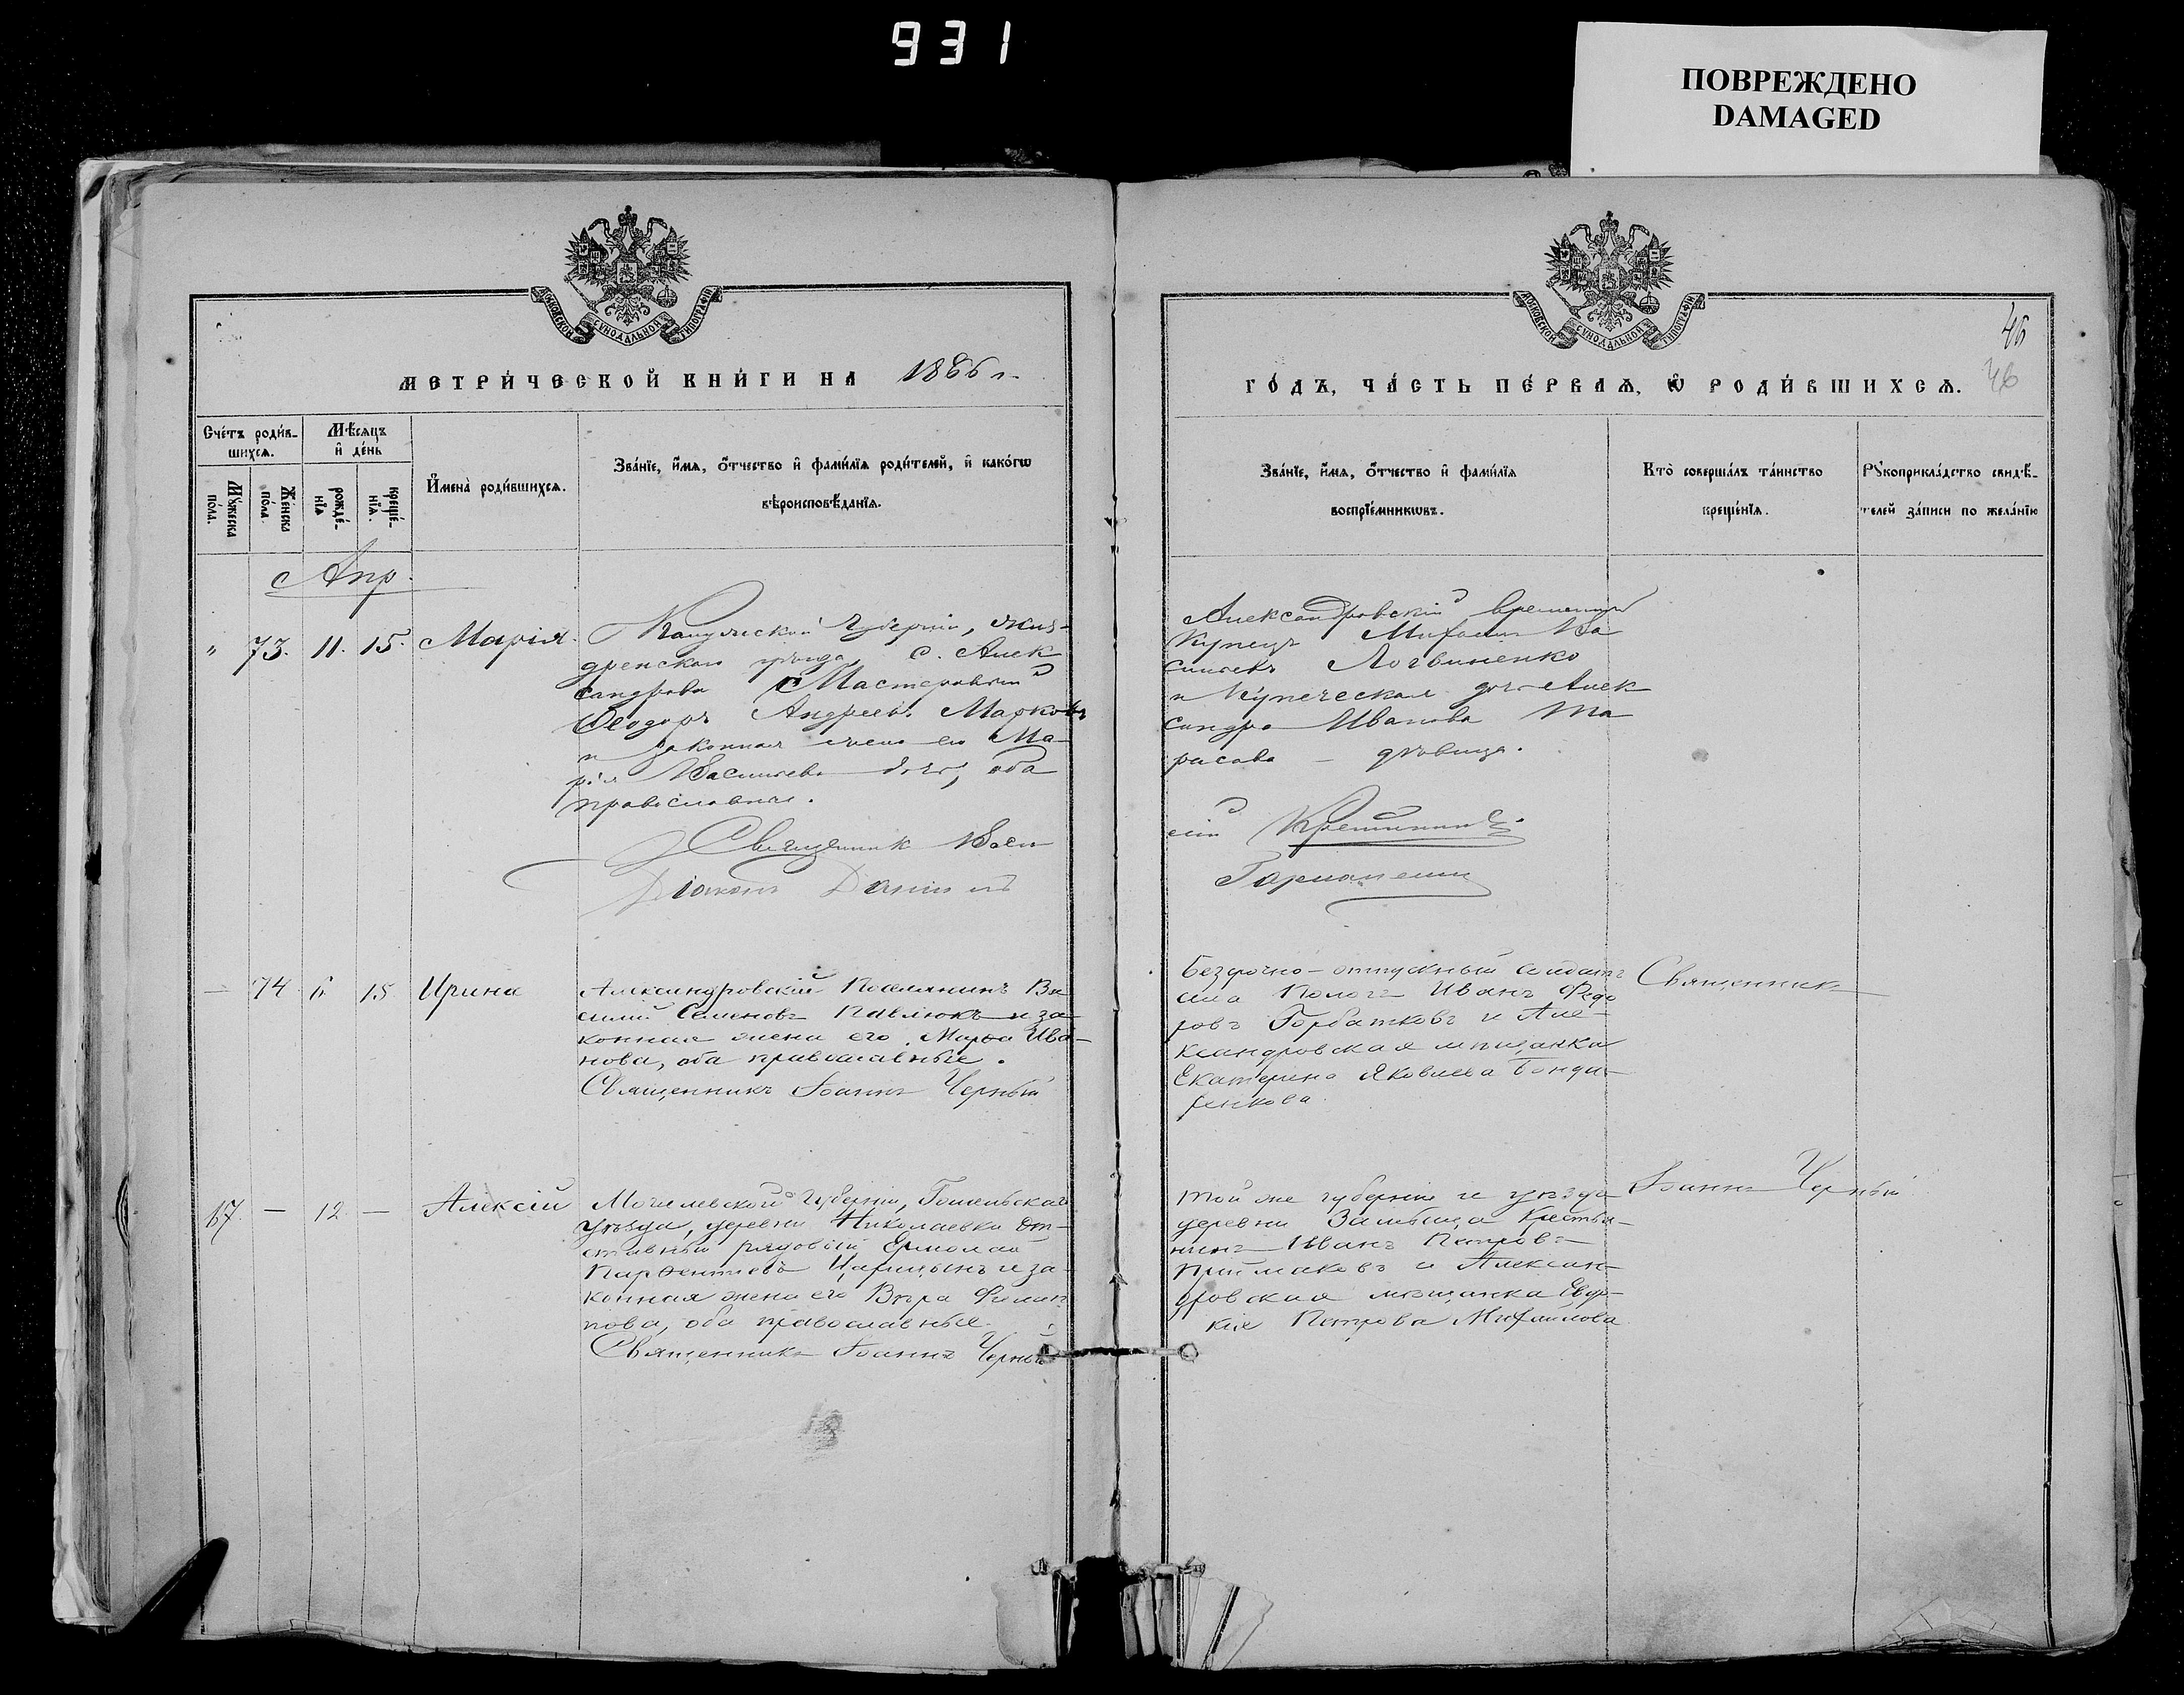 931
ПОВРЕЖДЕНО
DAMAGED
МОСКОВСКОЙ СѴНОДАЛЬНОЙ ТИПОГРАФІИ
МЕТРИ́ЧЕСКОЙ КНИ́ГИ НА 1886 г.
Сче́тъ роди́в-
шихсѧ.
Мѣ́сѧцъ
и҆ де́нь
Мꙋ́жеска
по́ла.
Же́нска
по́ла.
рожде́-
нїѧ
креще́-
нїѧ.
И҆мена̀ роди́вшихсѧ.
Зва́нїе, и҆́мѧ, ѻ҆́тчество и҆ фами́лїѧ роди́телей, и҆ како́гѡ
вѣроисповѣ́данїѧ.
Апр.
" 73. 11. 15. Марія.
Калужской Губерніи, Жиз-
дренскаго уѣзда с. Алек
сандровки Мастеровый
Ѳеодоръ Андреев. Марковъ
и законная жена его Ма-
рія Васильева дочь, оба
православные.
Священник Васи
Діаконъ Даніилъ
— 74 6. 15 Ирина
Александровскій Поселянинъ Ва
силій Семеновъ Павлюкъ и за-
конная жена его Марѳа Ива-
нова, оба православные.
Священникъ Іоаннъ Черный
67. — 12 — Алексій
Могилевской Губерніи, Гомельскаго
уѣзда, деревни Николаевки от-
ставный рядовый Ермолай
Парѳентіевъ Царицынъ и за-
конная жена его Вѣра Филип
пова, оба православные.
Священникъ Іоаннъ Черный
МОСКОВСКОЙ СѴНОДАЛЬНОЙ ТИПОГРАФІИ
46
46
ГО́ДЪ, ЧА́СТЬ ПЕ́РВАѦ, Ѡ҆ РОДИ́ВШИХСѦ.
Зва́нїе, и҆́мѧ, ѻ҆́тчество и҆ фами́лїѧ
воспрїе́мникѡвъ.
Кто̀ соверша́лъ та́инство
креще́нїѧ.
Рꙋкоприкла́дство свидѣ́-
телей за́писи по жела́нїю
Александровскій временный
Купецъ Михаилъ Ва
сильевъ Логвиненко
и Купеческая дочь Алек
сандра Иванова Та
расова — дѣвица.
лій
Безсрочно-отпускный солдатъ
села Пологъ Иванъ Федо
ровъ Горбатковъ и Але-
ксандровская мѣщанка
Екатерина Яковлева Бонда-
ренкова.
Священникъ
той же губерніи и уѣзда
деревни Крестья-
нинъ Иванъ Петровъ
Приймаковъ и Алексан-
дровская мѣщанка Евдо-
кія Петрова Михайлова
Іоаннъ Черный